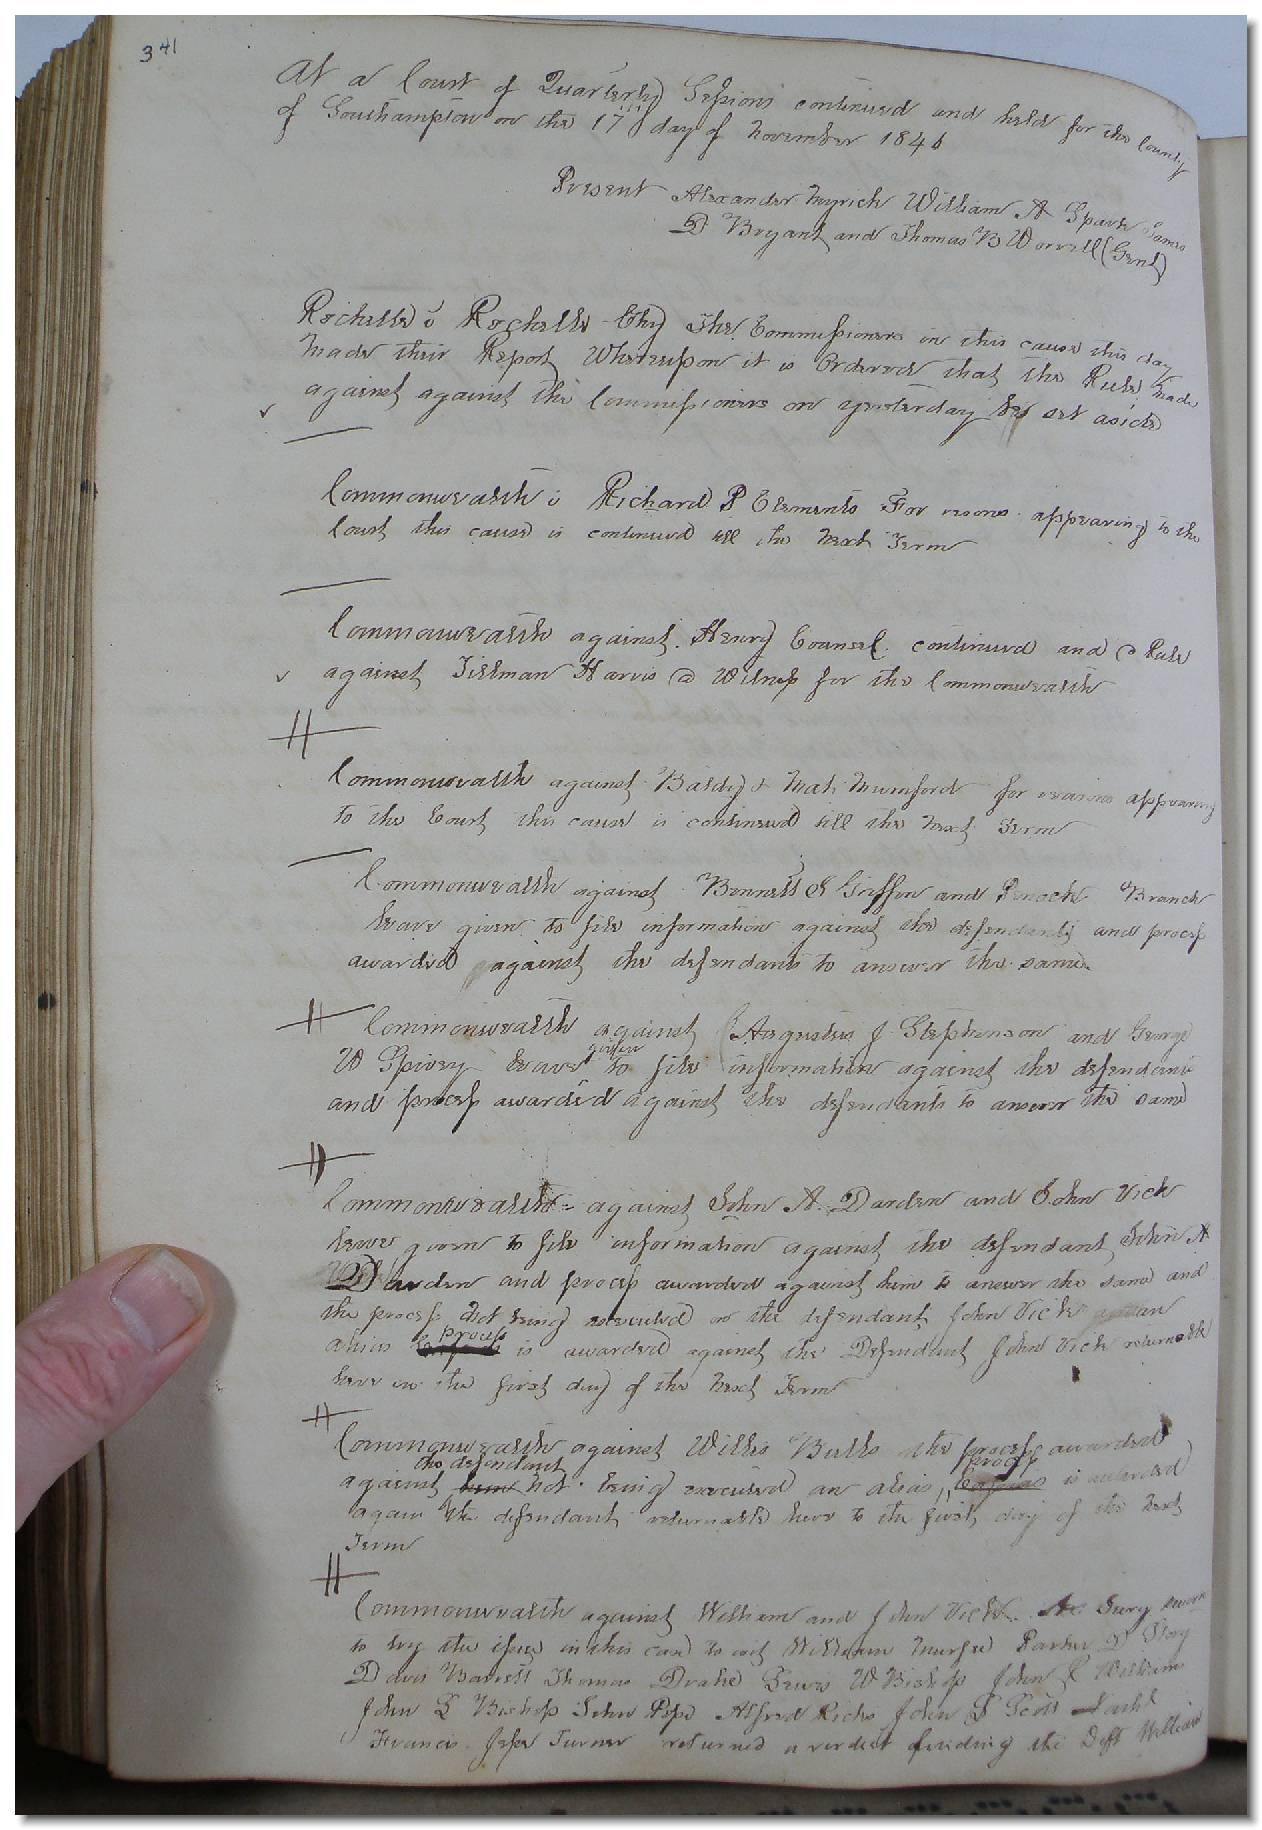 341
At a Court of Quarterly Sessions continued and held for the County
of Southampton on the 17th day of November 1846
Present Alexander Myrick William A Spark James
D Bryant and Thomas B Worrell (Gent)
Rochelle v Rochelle Chy The Commissioners in this cause this day
made their Report Whereupon it is Ordered that the Rule made
against against the Commissioners on yesterday be set aside
Commonwealth v Richard P Clements For resons appearing to the
Court this cause is continued till the Next Term
Commonwealth against Henry Counsel continued and a Rule
against Tillman Harris a Witness for the Commonwealth
Commonwealth against Baldy & Mumford for reasons appearing
to the Court this cause is continued till the Next Term
Commonwealth against Bennett J Griffin and Enoch Branch
leave given to file information against the defendants and process
awarded against the defendants to answer the same
Commonwealth against Augustus J Stephenson and George
W Spivey leave given to file information against the defendants
and process awarded against the defendants to answer the same
Commonwealth against John A Darden and John Vick
leave given to file information against the defendant John A
Darden and process awarded against him to answer the same and
the process not being executed on the defendant John Vick an
alias process is awarded against the Defendant John Vick returnable
here on the first day of the Next Term
Commonwealth against Willis Butts the process awarded
against the defendant not being executed an alias process is awarded
again the defendant returnable here to the first day of the Next
Term
Commonwealth against William and John Vick A Jury sworn
to try the issue in this case to wit William Murfee Parker D Story
Davis Barrett Thomas Drake Lewis W Bishop John William
John Bishop John Pope Alfred Ricks John Scott
Francis Jesse Turner returned a verdict finding the Deft William